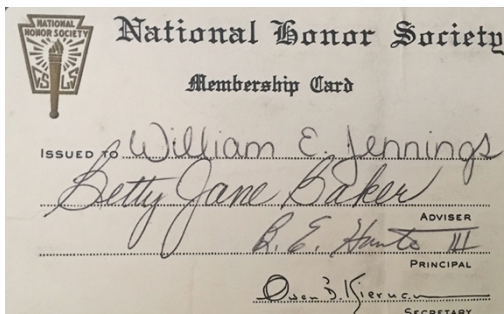 NATIONAL
HONOR SOCIETY
C S L S
National Honor Society
Membership Card
ISSUED TO William E. Jennings
Betty Jane Baker
ADVISER
B. E. III
PRINCIPAL
Owen B. Kiernan
SECRETARY